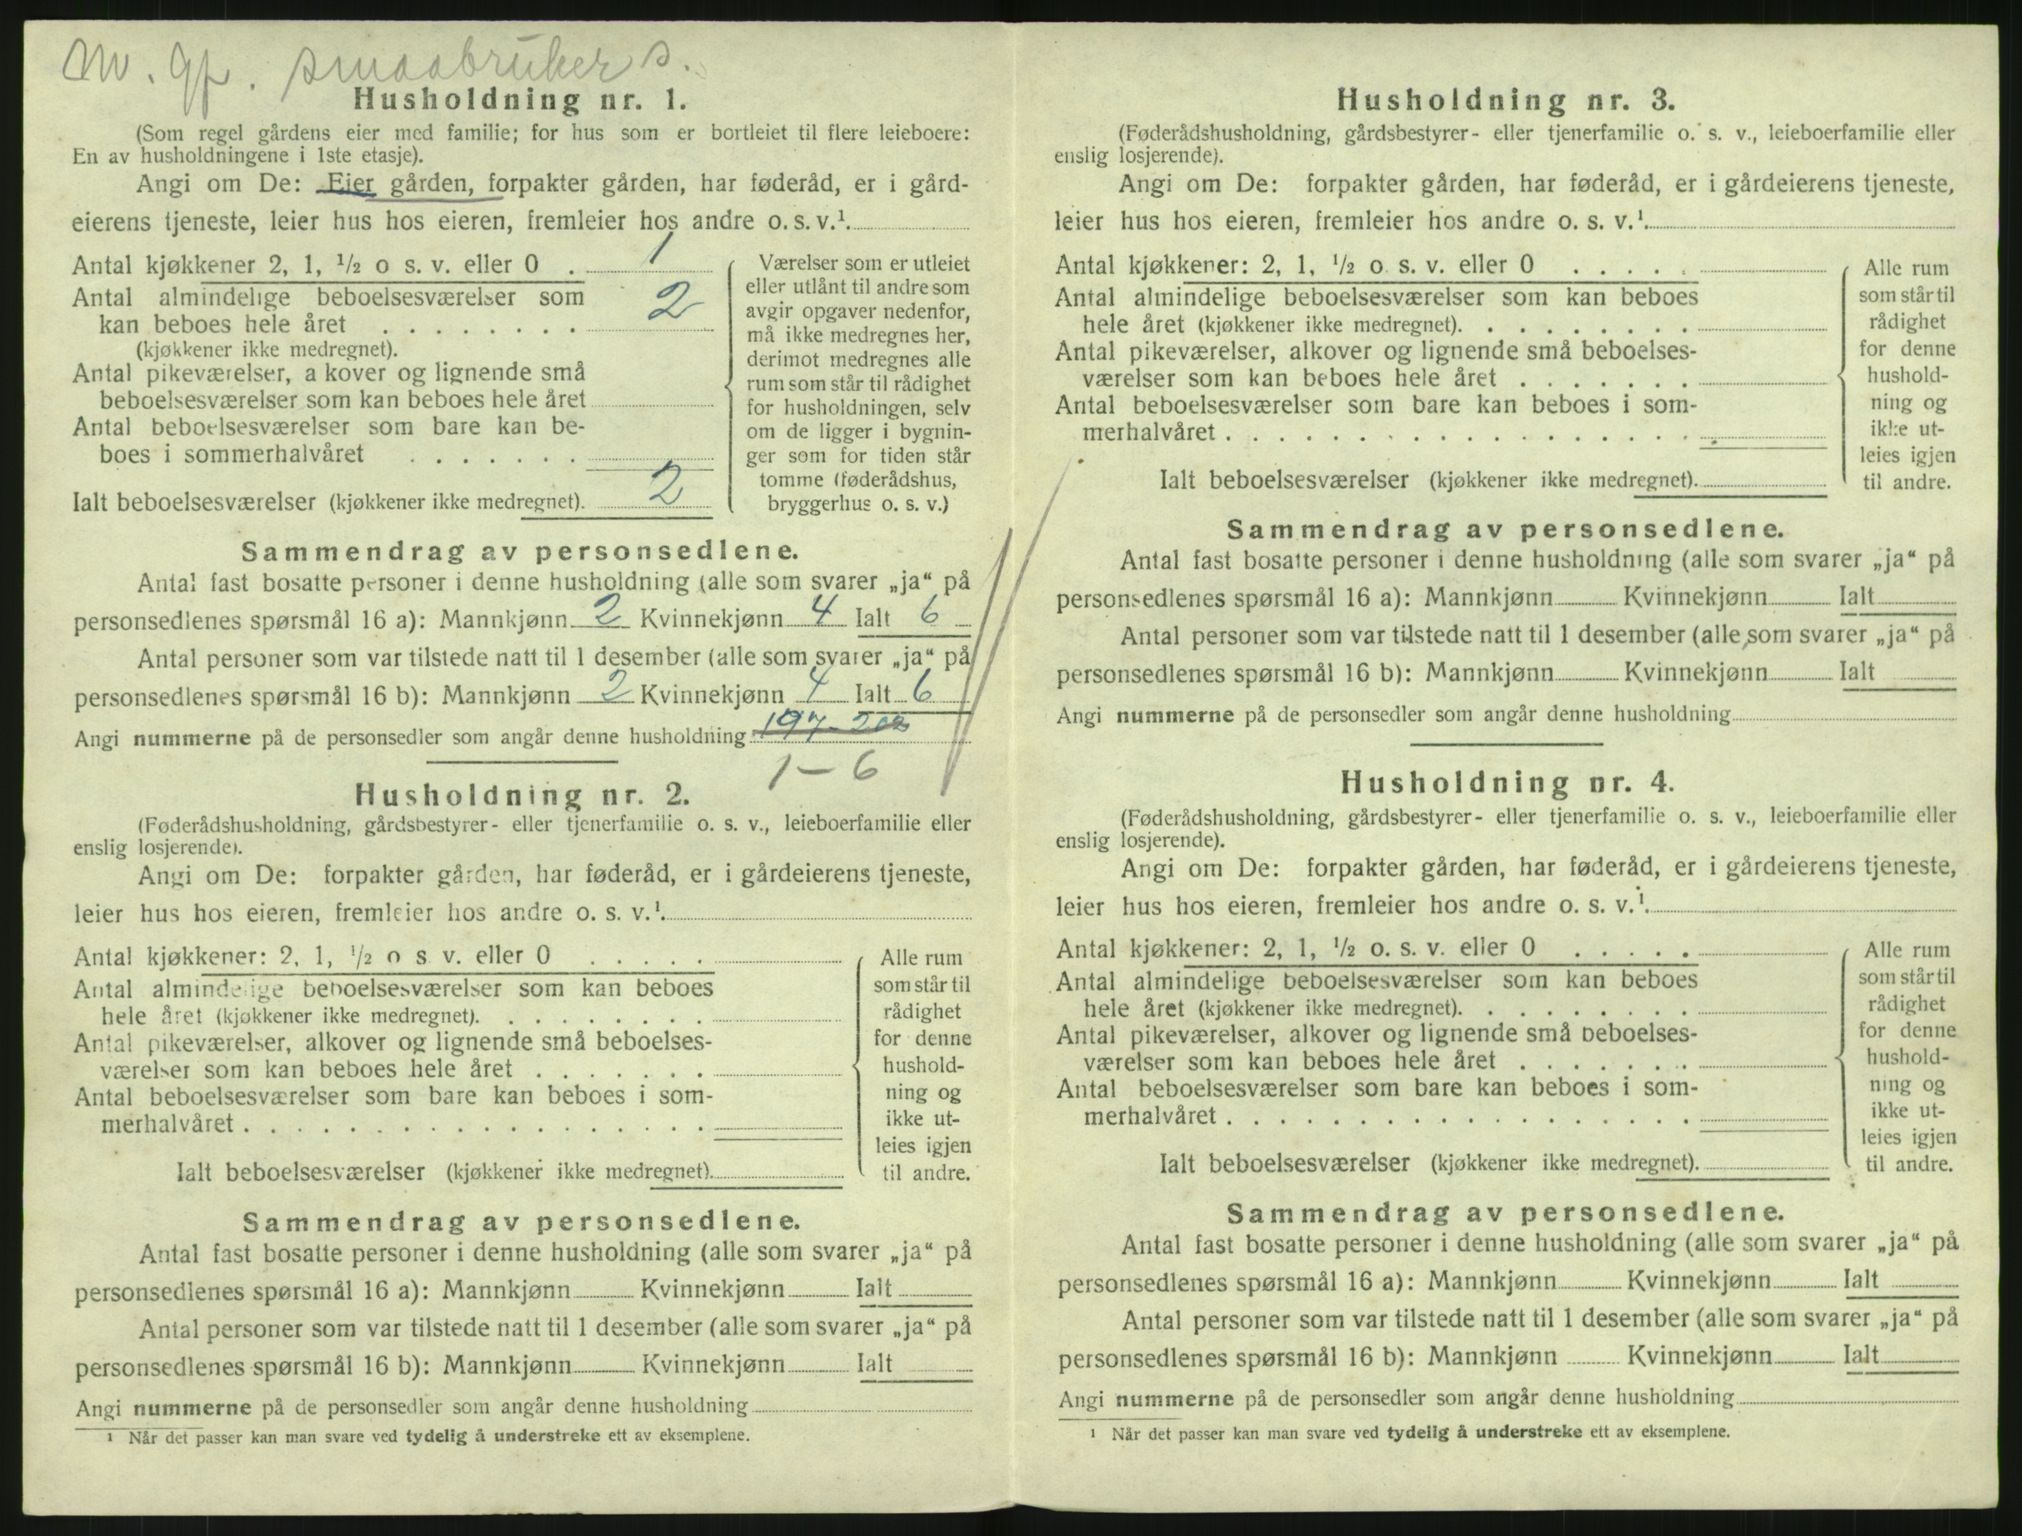 m. gf. smaabrukers.
Husholdning nr. 1.
(Som regel gårdens eier med familie; for hus som er bortleiet til flere leieboere:
En av husholdningene i 1ste etasje).
Angi om De: Eier gården, forpakter gården, har føderåd, er i gård-
eierens tjeneste, leier hus hos eieren, fremleier hos andre o. s. v.¹.
Antal kjøkkener 2, 1, ½ o s. v. eller 0 . 1
Antal almindelige beboelsesværelser som
kan beboes hele året . . . . . . . . 2
(kjøkkener ikke medregnet).
Antal pikeværelser, a kover og lignende små
beboelsesværelser som kan beboes hele året
Antal beboelsesværelser som bare kan be-
boes i sommerhalvåret . . . . . . .
Ialt beboelsesværelser (kjøkkener ikke medregnet). 2
Værelser som er utleiet
eller utlånt til andre som
avgir opgaver nedenfor,
må ikke medregnes her,
derimot medregnes alle
rum som står til rådighet
for husholdningen, selv
om de ligger i bygnin-
ger som for tiden står
tomme (føderådshus,
bryggerhus o. s. v.)
Sammendrag av personsedlene.
Antal fast bosatte personer i denne husholdning (alle som svarer „ja“ på
personsedlenes spørsmål 16 a): Mannkjønn 2 Kvinnekjønn 4 Ialt 6
Antal personer som var tilstede natt til 1 desember (alle som svarer „ja“ på
personsedlenes spørsmål 16 b): Mannkjønn 2 Kvinnekjønn 4 Ialt 6
Angi nummerne på de personsedler som angår denne husholdning 197-202
1-6
Husholdning nr. 2.
(Føderådshusholdning, gårdsbestyrer- eller tjenerfamilie o. s. v., leieboerfamilie eller
enslig losjerende).
Angi om De: forpakter gården, har føderåd, er i gårdeierens tjeneste,
leier hus hos eieren, fremleier hos andre o. s. v.¹.
Antal kjøkkener: 2, 1, ½ o s. v. eller 0 . . . . .
Antal almindelige beboelsesværelser som kan beboes
hele året (kjøkkener ikke medregnet). . . . . . . . .
Antal pikeværelser, alkover og lignende små beboelses-
værelser som kan beboes hele året . . . . . . .
Antal beboelsesværelser som bare kan beboes i som-
merhalvåret . . . . . . . . . . . . . . . . . .
Ialt beboelsesværelser (kjøkkener ikke medregnet).
Alle rum
som står til
rådighet
for denne
hushold-
ning og
ikke ut-
leies igjen
til andre.
Sammendrag av personsedlene.
Antal fast bosatte personer i denne husholdning (alle som svarer „ja“ på
personsedlenes spørsmål 16 a): Mannkjønn Kvinnekjønn Ialt
Antal personer som var tilstede natt til 1 desember (alle som svarer „ja“ på
personsedlenes spørsmål 16 b): Mannkjønn Kvinnekjønn Ialt
Angi nummerne på de personsedler som angår denne husholdning
¹ Når det passer kan man svare ved tydelig å understreke ett av eksemplene.
Husholdning nr. 3.
(Føderådshusholdning, gårdsbestyrer- eller tjenerfamilie o. s. v., leieboerfamilie eller
enslig losjerende).
Angi om De: forpakter gården, har føderåd, er i gårdeierens tjeneste,
leier hus hos eieren, fremleier hos andre o. s. v.¹.
Antal kjøkkener: 2, 1, ½ o. s. v. eller 0 . . . . .
Antal almindelige beboelsesværelser som kan beboes
hele året (kjøkkener ikke medregnet). . . . . . . . .
Antal pikeværelser, alkover og lignende små beboelses-
værelser som kan beboes hele året . . . . . . .
Antal beboelsesværelser som bare kan beboes i som-
merhalvåret . . . . . . . . . . . . . . . . . .
Ialt beboelsesværelser (kjøkkener ikke medregnet).
Alle rum
som står til
rådighet
for denne
hushold-
ning og
ikke ut-
leies igjen
til andre.
Sammendrag av personsedlene.
Antal fast bosatte personer i denne husholdning (alle som svarer „ja“ på
personsedlenes spørsmål 16 a): Mannkjønn Kvinnekjønn Ialt
Antal personer som var tilstede natt til 1 desember (alle som svarer „ja“ på
personsedlenes spørsmål 16 b): Mannkjønn Kvinnekjønn Ialt
Angi nummerne på de personsedler som angår denne husholdning
Husholdning nr. 4.
(Føderådshusholdning, gårdsbestyrer- eller tjenerfamilie o. s. v., leieboerfamilie eller
enslig losjerende).
Angi om De: forpakter gården, har føderåd, er i gårdeierens tjeneste,
leier hus hos eieren, fremleier hos andre o. s. v.¹.
Antal kjøkkener: 2, 1, ½ o. s. v. eller 0 . . . . .
Antal almindelige beboelsesværelser som kan beboes
hele året (kjøkkener ikke medregnet). . . . . . . . .
Antal pikeværelser, alkover og lignende små beboelses-
værelser som kan beboes hele året . . . . . . .
Antal beboelsesværelser som bare kan beboes i som-
merhalvåret . . . . . . . . . . . . . . . . . .
Ialt beboelsesværelser (kjøkkener ikke medregnet).
Alle rum
som står til
rådighet
for denne
hushold-
ning og
ikke ut-
leies igjen
til andre.
Sammendrag av personsedlene.
Antal fast bosatte personer i denne husholdning (alle som svarer „ja“ på
personsedlenes spørsmål 16 a): Mannkjønn Kvinnekjønn Ialt
Antal personer som var tilstede natt til 1 desember (alle som svarer „ja“ på
personsedlenes spørsmål 16 b): Mannkjønn Kvinnekjønn Ialt
Angi nummerne på de personsedler som angår denne husholdning
¹ Når det passer kan man svare ved tydelig å understreke ett av eksemplene.